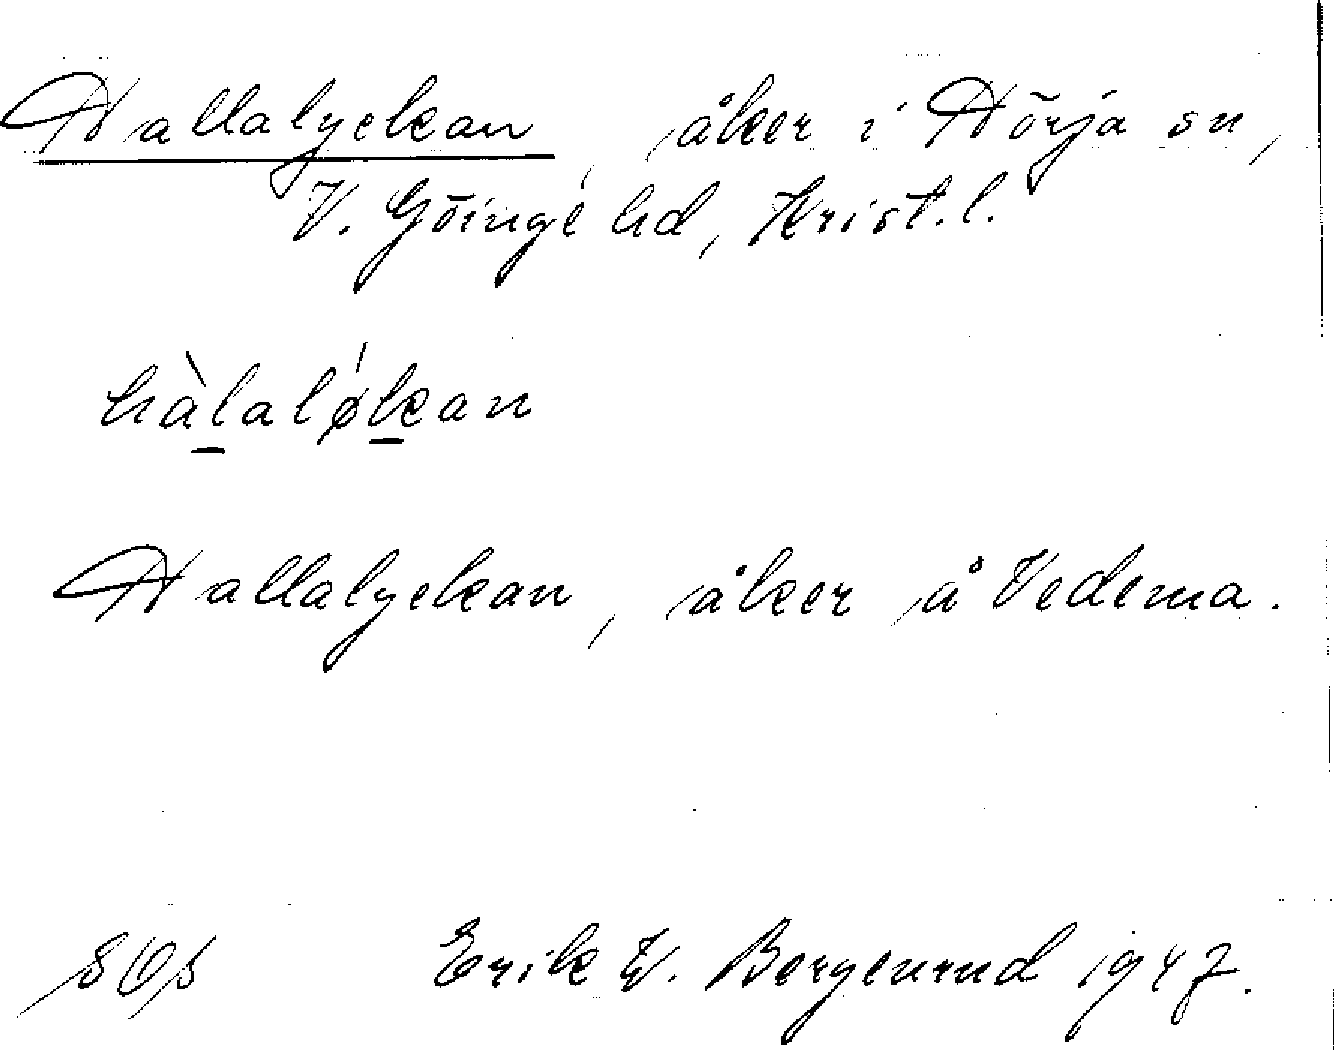 Hallalyckan, åker i Hörja sn,
V. Göinge hd, Krist. l.
hàlalǿkan
Hallalyckan, åker å Vedema.
Erik W. Bergenrud 1947.